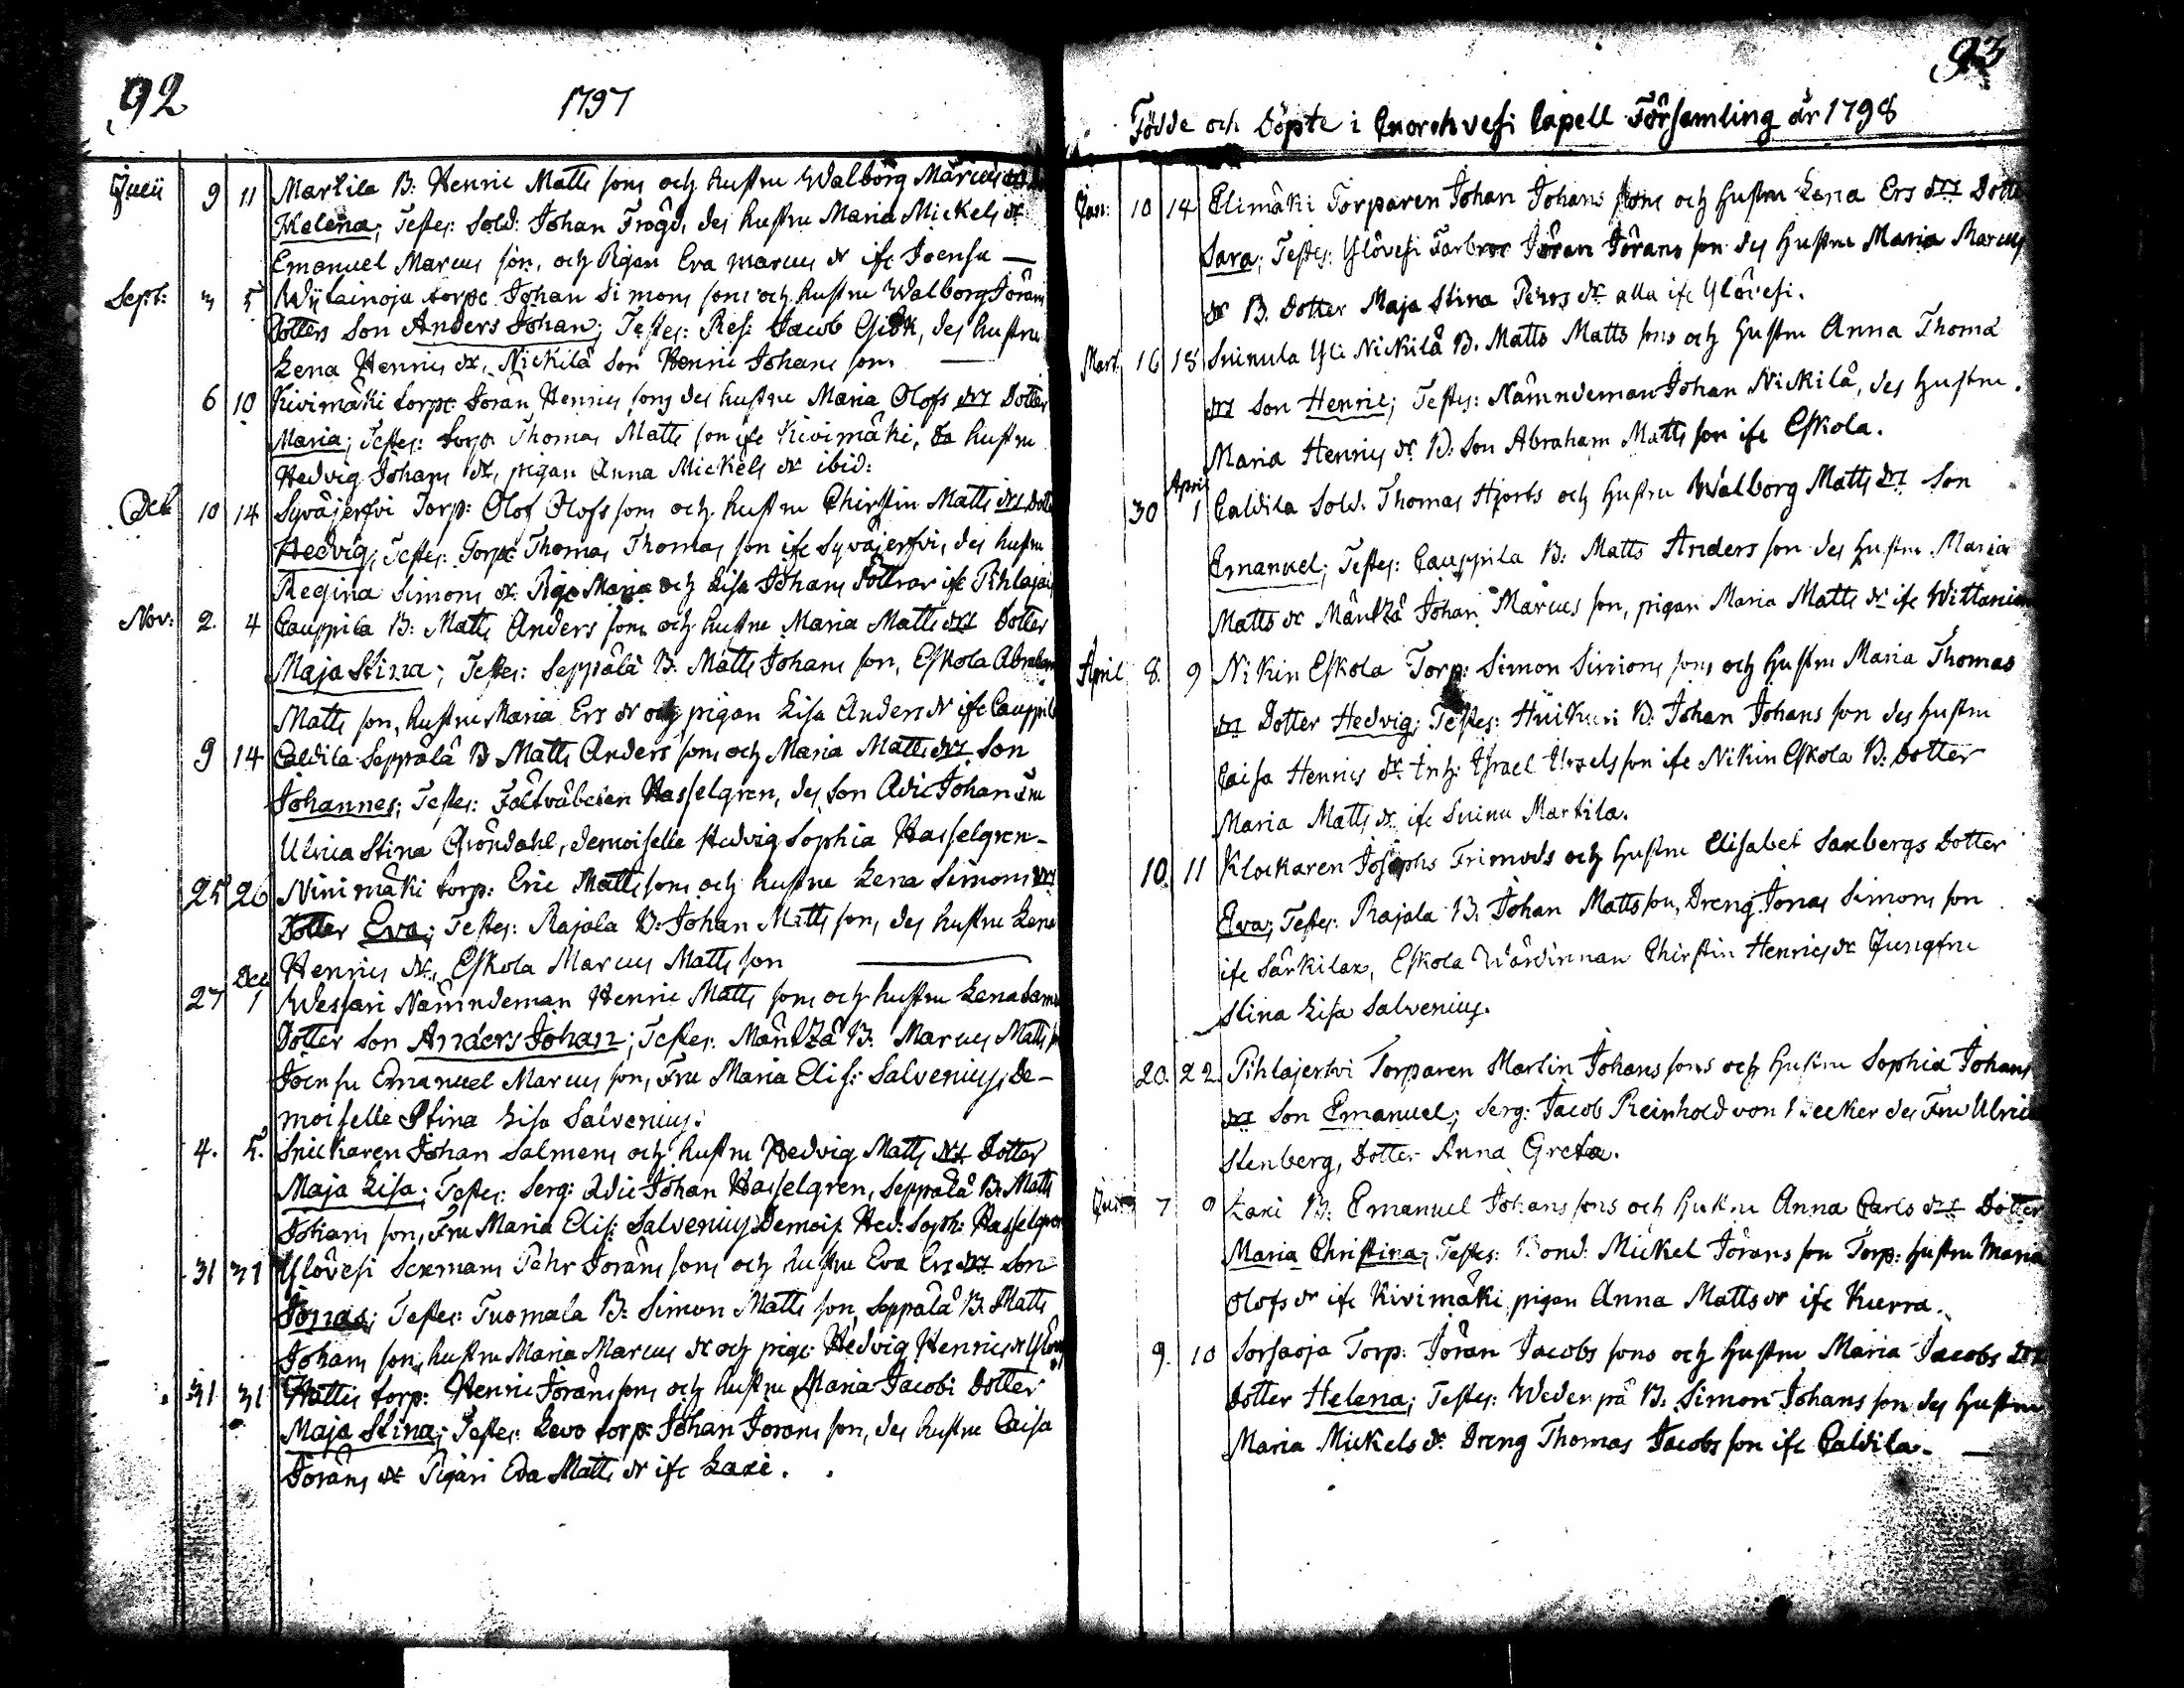 92
1797
Julii 9 11 Martila B: Henric Matts sons och hustru Walborg Marcus
Helena; Testes: Sold: Johan Frögd, des hustru Maria Mickels dr
Emanuel Marcus son, och Pigan Eva Marcus dr ifr Joensu —
Sept: 3 5 Wytainoja torpr Johan Simons sons och hustru Walborg Jörans
Dotters Son Anders Johan; Testes: Res: Jacob Gisk, des hustru
Lena Henrics dr, Nickilä Son Henric Johans son —
6 10 Kivimäki torpr Jöran Henrics sons des hustru Maria Olofs drs Dotter
Maria; Testes: torpr Thomas Matts son ifr Kivimäki, hustru
Hedvig Johans dr, pigan Anna Mickels dr ibid:
Oct 10 14 Syväjerfvi Torp: Olof Olofs sons och hustru Chirstin Matts drs Dotter
Hedvig; Testes: Torpr Thomas Thomas son ifr Syväjerfvi, des hustru
Regina Simons dr Pig: Maria och Lisa Johans Döttrar ifr Pihlaja
Nov: 2. 4 Cauppila B: Matts Anders sons och hustru Maria Matts drs Dotter
Maja Stina; Testes: Seppälä B: Matts Johans son, Eskola Abraham
Matts son, hustru Maria Ers dr och pigan Lisa Anders dr ifr Cauppila
9 14 Caldila Seppälä B Matts Anders sons och Maria Matts drs Son
Johannes; Testes: Fältväbelen Hasselgren, des Son Adic Johan Fru
Ulrica Stina Gröndahl, demoiselle Hedvig Sophia Hasselgren-
25 26 Ninimäki torp: Eric Matts sons och hustru Lena Simons drs
Dotter Eva; Testes: Rajala B: Johan Matts son, des hustru Lena
Henrics dr, Eskola Marcus Matts son —
27 Dec 1 Wessari Nämndeman Henric Matts sons och hustru Lena Sam
Dotter Son Anders Johan; Testes: Mäntzä B: Marcus Matts
Joensu Emanuel Marcus son, Fru Maria Elis: Salvenius, De-
moiselle Stina Lisa Salvenius.
4. 5. Snickaren Johan Salmens och hustru Hedvig Matts drs Dotter
Maja Lisa; Testes: Serg: Adic Johan Hasselgren, Seppälä B: Matts
Johans son, Fru Maria Elis: Salvenius, Demois: Hed: Soph: Hasselgren
31 31 Ylövesi Sexmans Pehr Jörans sons och hustru Eva Ers drs Son
Jonas; Testes: Tuomala B: Simon Matts son, Seppälä B: Matts
Johans son, hustru Maria Marcus dr och pigr Hedvig Henrics dr
31 31 Hattis torp: Henric Jörans sons och hustru Maria Jacobs Dotter
Maja Stina; Testes: Levo torp: Johan Jörans son, des hustru Caisa
Jörans dr Pigan Eva Matts dr ifr Laxi.
93
Födde och Döpte i Cuorehvesi Capell Församling år 1798
Jan: 10 14 Elimäki Torparen Johan Johans sons och hustru Lena Ers drs Dotter
Sara; Testes: Ylövesi Farbror Jöran Jörans son des hustru Maria Marcus
dr B. dotter Maja Stina Pehrs dr alla ifr Ylövesi.
Mart. 16 18 Suinula Yli Nickilä B. Matts Matts sons och hustru Anna Thomæ
drs Son Henric; Testes: Nämndeman Johan Nickilä, des hustru
Maria Henrics dr B. Son Abraham Matts son ifr Eskola.
30 April 1 Caldila Sold. Thomas Hjorts och hustru Walborg Matts drs Son
Emanuel; Testes: Cauppila B: Matts Anders son des hustru Maria
Matts dr Mäntzä Johan Marcus son, pigan Maria Matts dr ifr
April 8. 9 Nikin Eskola Torp: Simon Simons sons och hustru Maria Thomas
drs Dotter Hedvig; Testes: B: Johan Johans son des hustru
Caisa Henrics dr Inh: Israel son ifr Nikin Eskola B: dotter
Maria Matts dr ifr Suinu Martila.
10. 11 Klockaren Josephs Frimods och hustru Elisabet Saxbergs Dotter
Eva; Testes: Rajala B. Johan Matts son, Dreng Jonas Simons son
ifr Särkilax, Eskola Wärdinnan Chirstin Henrics dr Jungfru
Stina Lisa Salvenius.
20. 22. Pihlajerfvi Torparen Martin Johans sons och hustru Sophia Johans
drs Son Emanuel; Serg: Jacob Reinhold von des Fru Ulrica
Stenberg, Dotter Anna Greta.
7 9 Laxi B: Emanuel Johans sons och hustru Anna Carls drs Dotter
Maria Christina; Testes: Bond: Mickel Jörans son Torp: hustru Maria
Olofs dr ifr Kivimäki pigan Anna Matts dr ifr Kurra.
9. 10 Sorsaoja Torp: Jöran Jacobs sons och hustru Maria Jacobs drs
Dotter Helena; Testes: Wedenpä B: Simon Johans son des hustru
Maria Mickels dr Dreng Thomas Jacobs son ifr Caldila. —